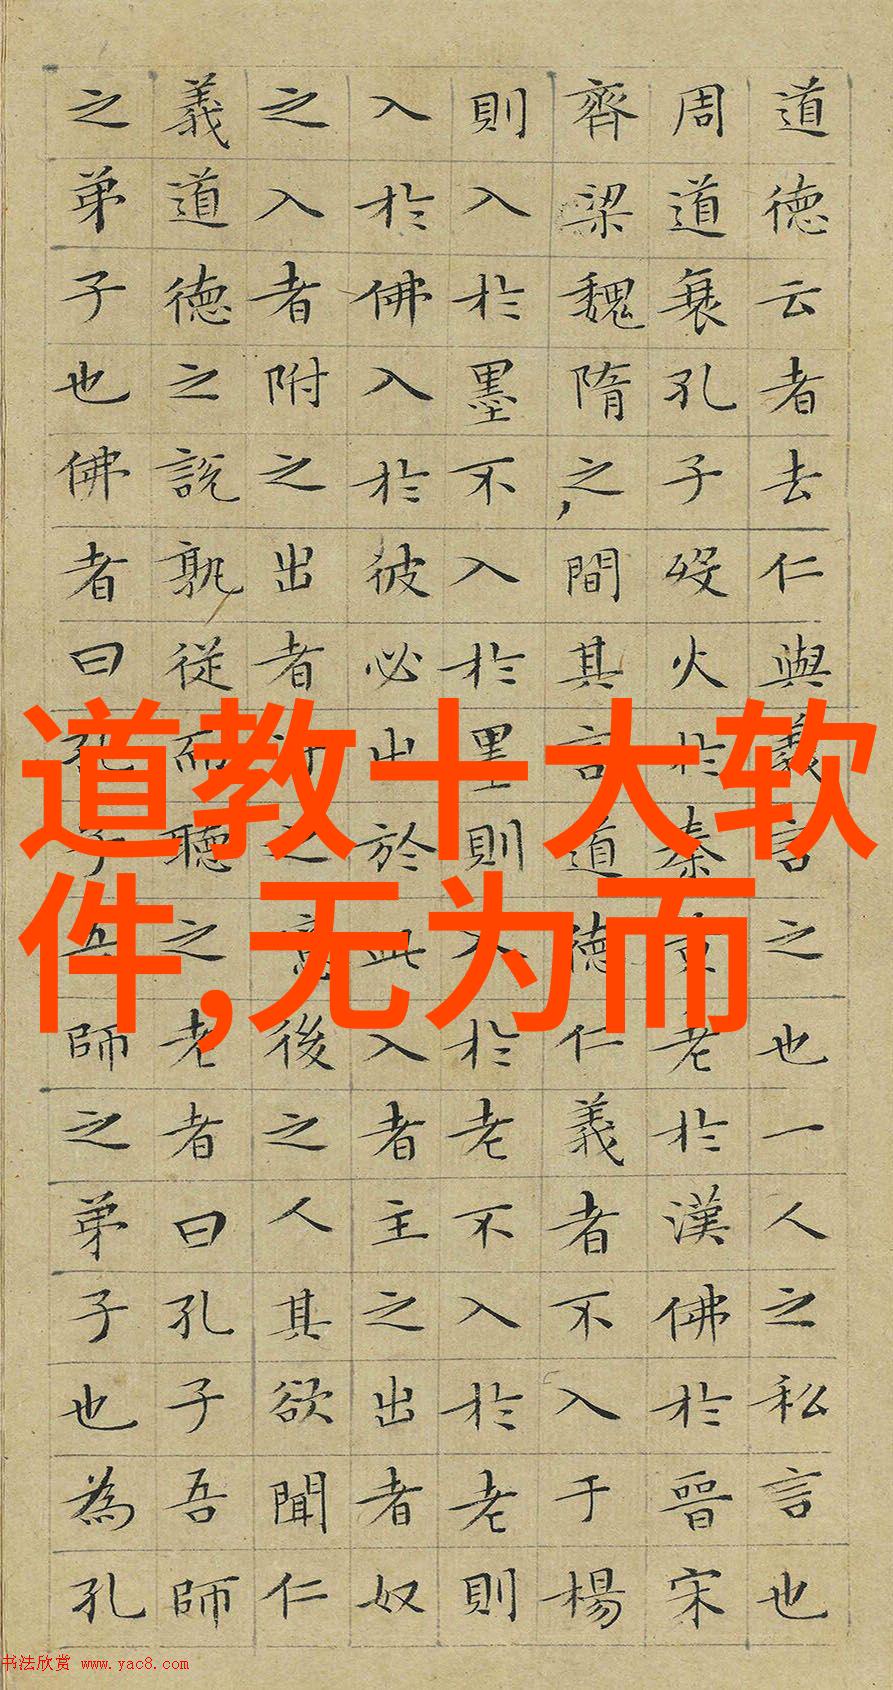 道德云者去仁與義言之也一人之私言也
周道衰孔子歿火於秦老於漢佛於晉宋
齊梁魏隋之間其言道德仁義者不入于楊
則入於墨不入於墨則入於老不入於老則
入於佛入於彼必出於此入者主之出者奴
之入者附之出者之後之人其欲聞仁
義道德之說孰從而聽之老者曰孔子吾師
之弟子也佛者曰孔子吾師之弟子也為孔
道教十大软
件,无为而
书法欣赏 www.yac8.com